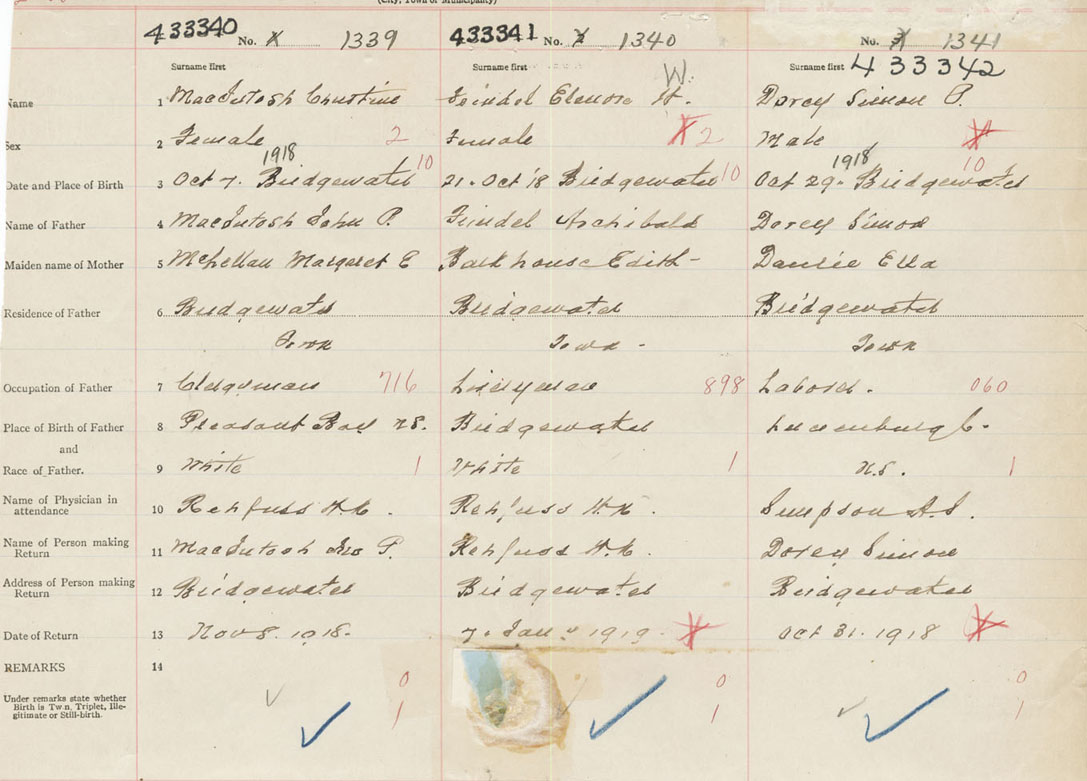 (City, Town or Municipality)
433340 No. 1339 433341 No. 1340 No. 1341
Surname first Surname first Surname first 433342
W.
Name 1 MacIntosh Christine Feindel Elenore H. Dorey Simon P.
Sex 2 Female 2 Female 2 Male
1918 1918
Date and Place of Birth 3 Oct 7. Bridgewater 10 21. Oct '18 Bridgewater 10 Oct 29. Bridgewater 10
Name of Father 4 MacIntosh John P. Feindel Archibald Dorey Simon
Maiden name of Mother 5 McLellan Margaret E Barkhouse Edith - Ella
Residence of Father 6 Bridgewater Bridgewater Bridgewater
Town Town - Town
Occupation of Father 7 Clergyman 716 898 Laborer. 060
Place of Birth of Father 8 Pleasant Bay N.S. Bridgewater Lunenburg C.
and
Race of Father. 9 White 1 White 1 N.S. 1
Name of Physician in
attendance 10 Rehfuss H.K. Rehfuss H.K. Simpson A.S.
Name of Person making
Return 11 MacIntosh Jno P. Rehfuss H.K. Dorey Simon
Address of Person making
Return 12 Bridgewater Bridgewater Bridgewater
Date of Return 13 Nov 8. 1918. 7. Jan. 1919. Oct 31. 1918
REMARKS 14
0 0 0
Under remarks state whether
Birth is Twin, Triplet, Ille-
gitimate or Still-birth. 1 1 1